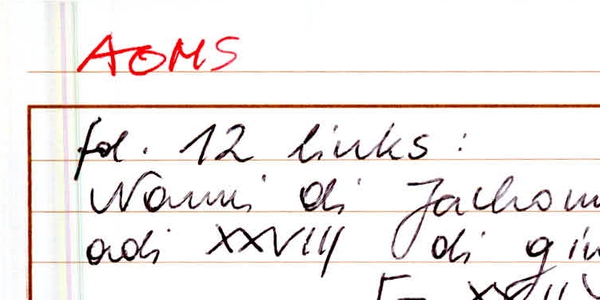 AOMS
fol. 12 links:
Nanni di Jachom
adi XXVIII di giu